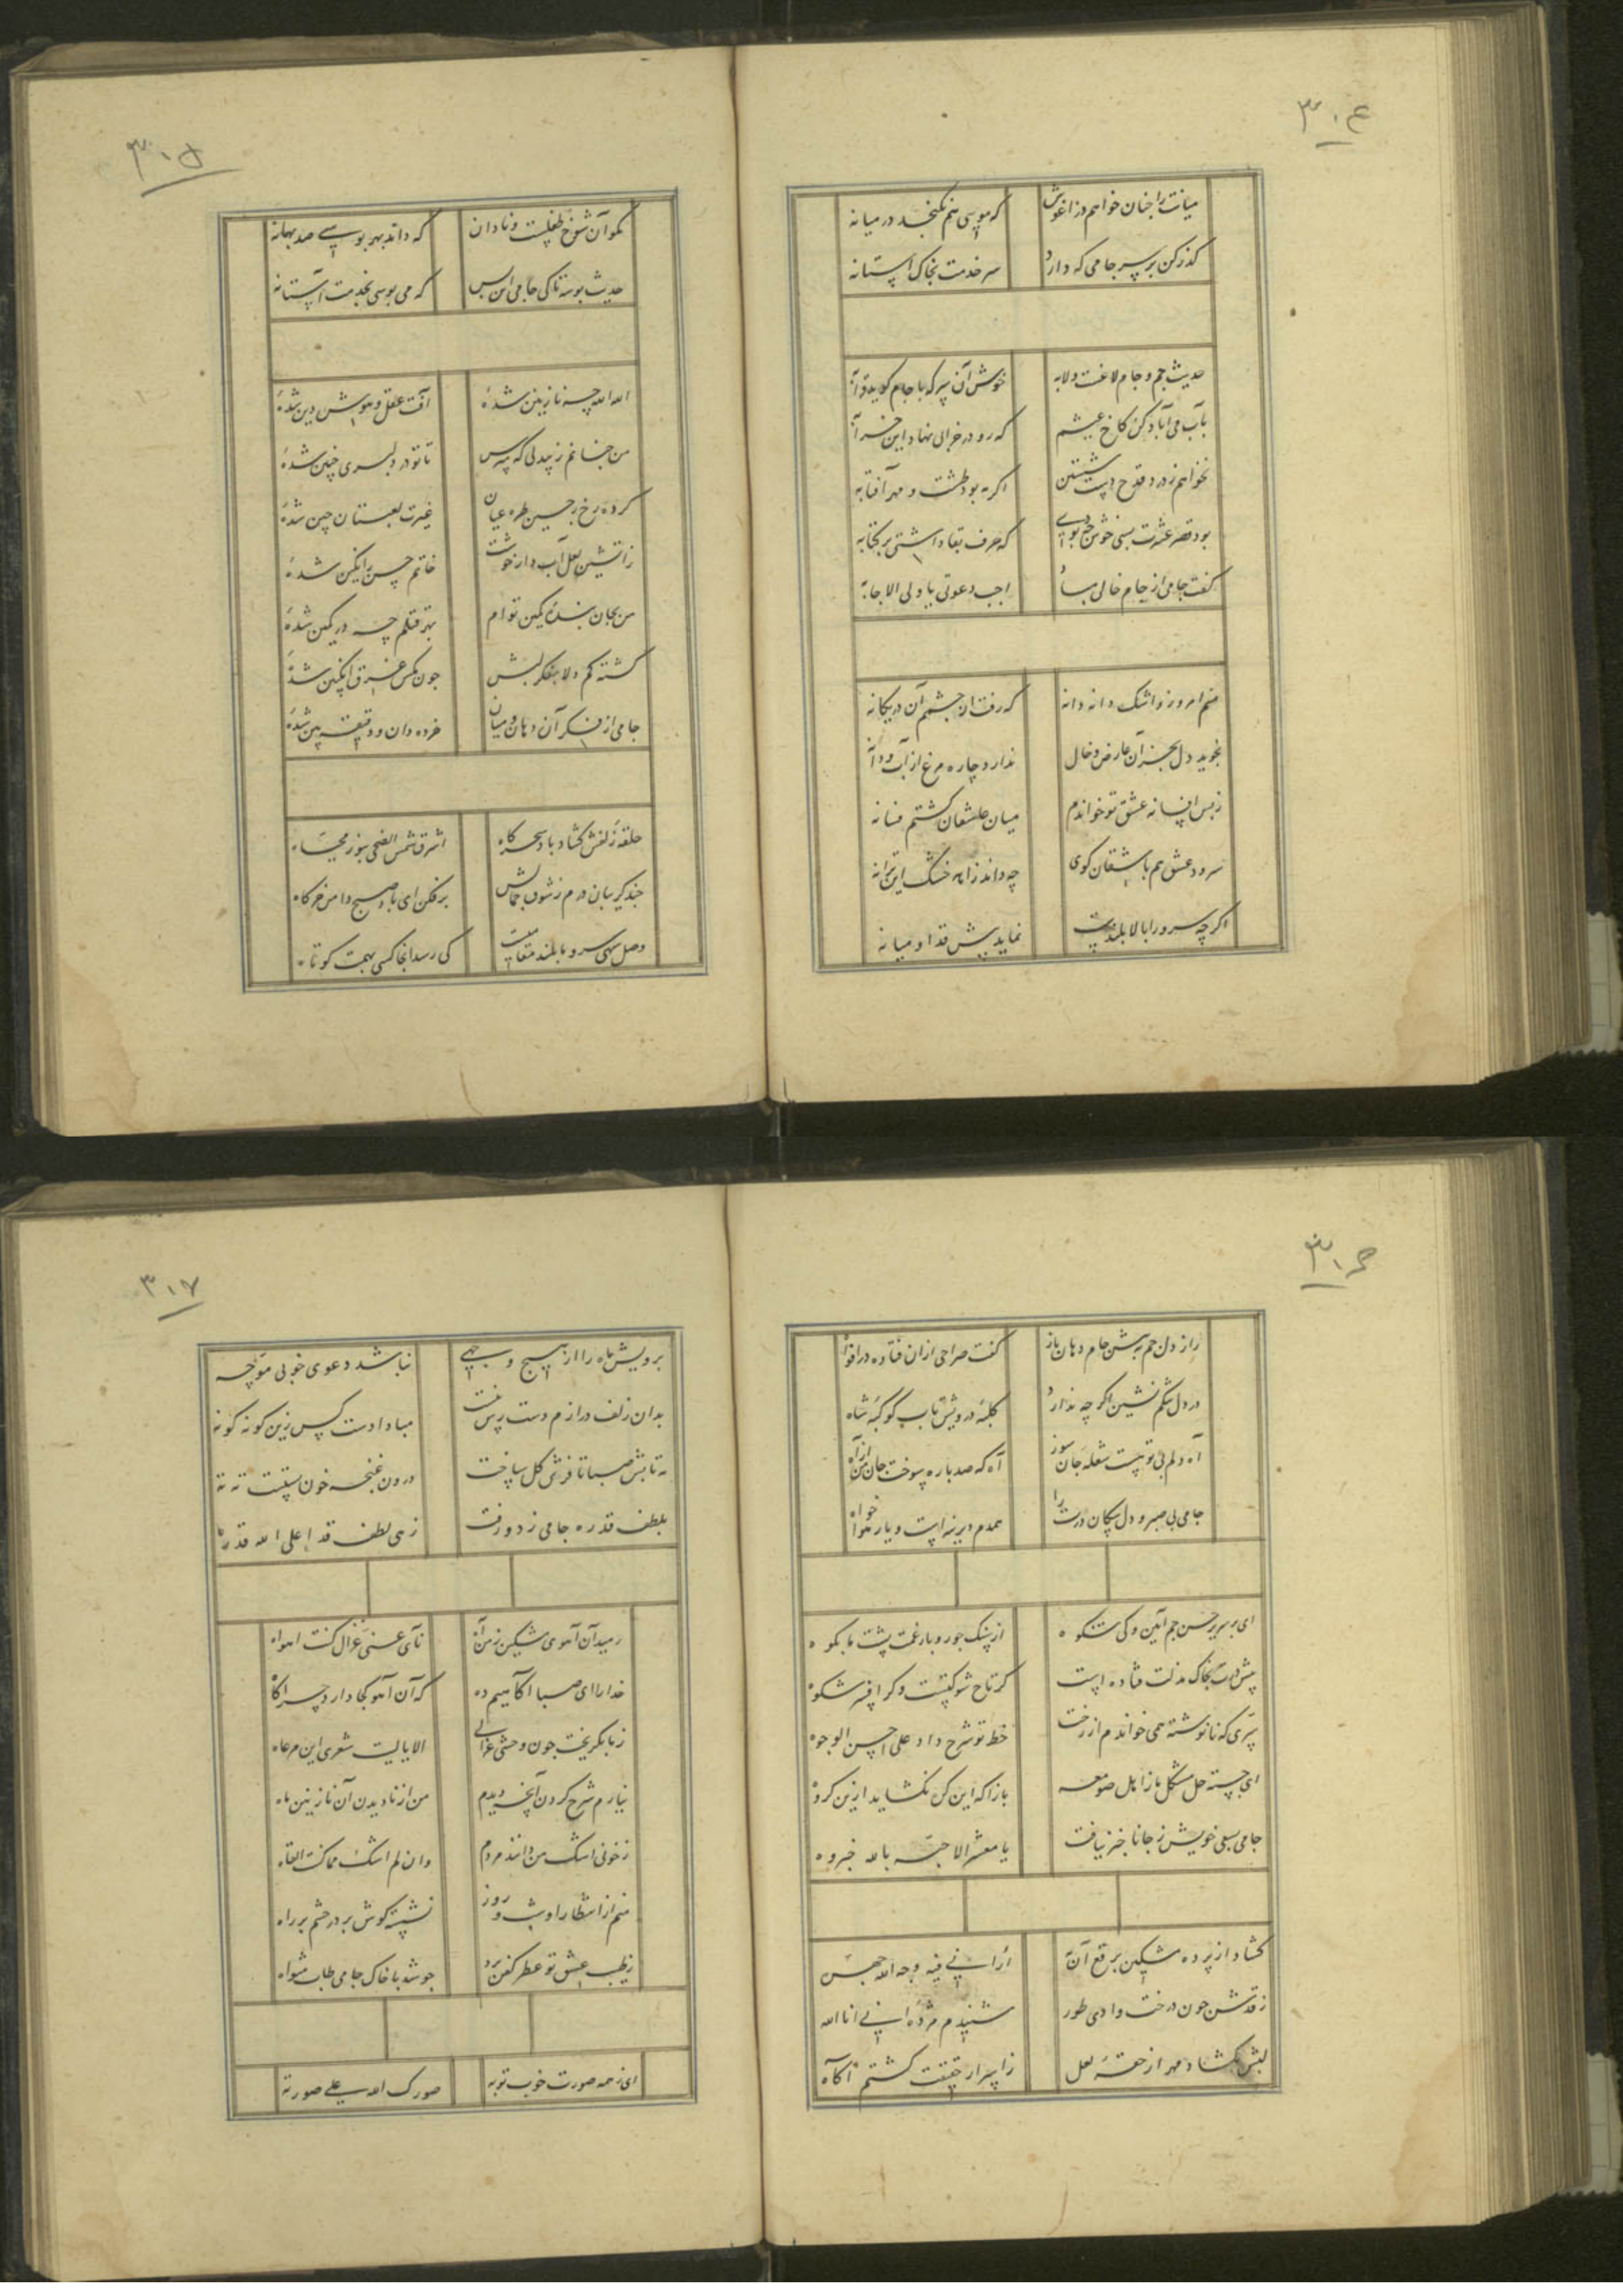 ۳۰۴
میانت را چنان خواهم در آغوش که مویی هم نکنجد در میانه
کذر کن بر سر جامی که دارد سر خدمت بخاک آستانه
حدیث جم و جام لاغست و لابه خوش آن پیر که با جام کوید قرآبه
بآب می آباد کن کاخ عیشم که رو در خرابی نهاد این خرآبه
نخواهم ز درد قدح دست شستن اکر مه بود طشت و مهر آفتابه
بود قصر عشرت بسی خوش چه بودی که حرف بقا داشتی بر کتابه
کفت جامی از جام خالی مباد اجب دعوتی یا ولی الاجابه
منم امروز و اشک دانه دانه که رفت از چشمم آن در یکانه
نجوید دل بجز آن عارض و خال ندارد چاره مرغ از آب و دانه
ز بس افسانه عشق تو خواندم میان عاشقان کشتم فسانه
سرود عشق هم با عاشقان کوی چه داند زاهد خشک این ترانه
اکر چه سرو را بالا بلندست نماید پیش قد او میانه
۳۰۵
مکو آن شوخ طفلست و نادان که داند بهر بوسی صد بهانه
حدیث بوسه تا کی جامی این بس که می بوسی بخدمت آستانه
الله الله چه نازنین شدهٔ آفت عقل و هوش و دین شدهٔ
من چنانم ز بیدلی که مپرس تا تو در دلبری چنین شدهٔ
کرده رخ ز چین طره عیان غیرت لعبتان چین شدهٔ
ز آتشین لعل آب دار خوشت خاتم حسن را نکین شدهٔ
من بجان بندهٔ کمین توام بهر قتلم چه در کمین شدهٔ
کشته کم دلا بفکر لبش چون مکس غرق انکبین شدهٔ
جامی از فکر آن دهان و میان خرده دان و دقیقه بین شدهٔ
حلقه زلفش کشاد باد سحرکاه اشرق شمس الضحی بنور محیاه
چند کریبان درم ز شوق جمالش برفکن ای باد صبح دامن خرکاه
وصل سهی سرو ما بلند مقامیست کی رسد آنجا کسی بهمت کوتاه
۳۰۶
راز دل جم به پیش جام دهان باز کفت صراحی از آن فتاده در افواه
در دل تنکم نشین اکر چه ندارد کلبهٔ درویش تاب کوکبهٔ شاه
آه دلم بی تو نیست شعله جان سوز آه که صد باره سوخت جان من از آه
جامی بی صبر و دل سکان درت را همدم دیرینه است و یار هواخواه
ای بر سریر حسن جم آیین و کی شکوه از سنک جور و بار غمت پشت ما چو کوه
پیش درت بخاک مذلت فتاده است کر تاج شوکتست و کر افسر شکوه
سری که نانوشته همی خواندم از رخت خط تو شرح داد علی احسن الوجوه
ای جسته حل مشکل ما ز اهل صومعه باز آ که این کره نکشاید ازین کروه
جامی بسعی خویش ز جانان خبر نیافت یا معشر الاحبه بالله خبروه
کشاد از پرده مشکین برقع آن مه ارانی فیه وجه الله جهره
ز قدش چون درخت وادی طور شنیدم مژدهٔ انی انا الله
لبش بکشاد مهر از حقهٔ لعل ز اسرار حقیقت کشتم آکاه
۳۰۷
برویش ماه را از هیچ وجهی نباشد دعوی خوبی موجه
بدان زلف درازم دست رس نیست مبادا دست کس زین کونه کوته
ته تابش صبا تا فرش کل ساخت درون غنچه خون بستست ته ته
بلطف قد ره جامی زد و رفت زهی لطف قد اعلی الله قدره
رمید آن آهوی مشکین ز من آه تآی عنی غزال کنت اهواه
خدا را ای صبا آکاهیم ده که آن آهو کجا دارد چراکاه
ز ما بکریخت چون وحشی غزالی الا یا لیت شعری این مرعاه
نیارم شرح کردن آنچه دیدم من از نادیدن آن نازنین ماه
ز خونی اشک من دانند مردم وان لم اشک مما کنت القاه
منم از انتظار او شب و روز نشسته کوش بر در چشم بر راه
ز طیب عشق تو عطر کفن برد چو شد با خاک جامی طاب مثواه
ای ز همه صورت خوب تو به صورک الله علی صورته